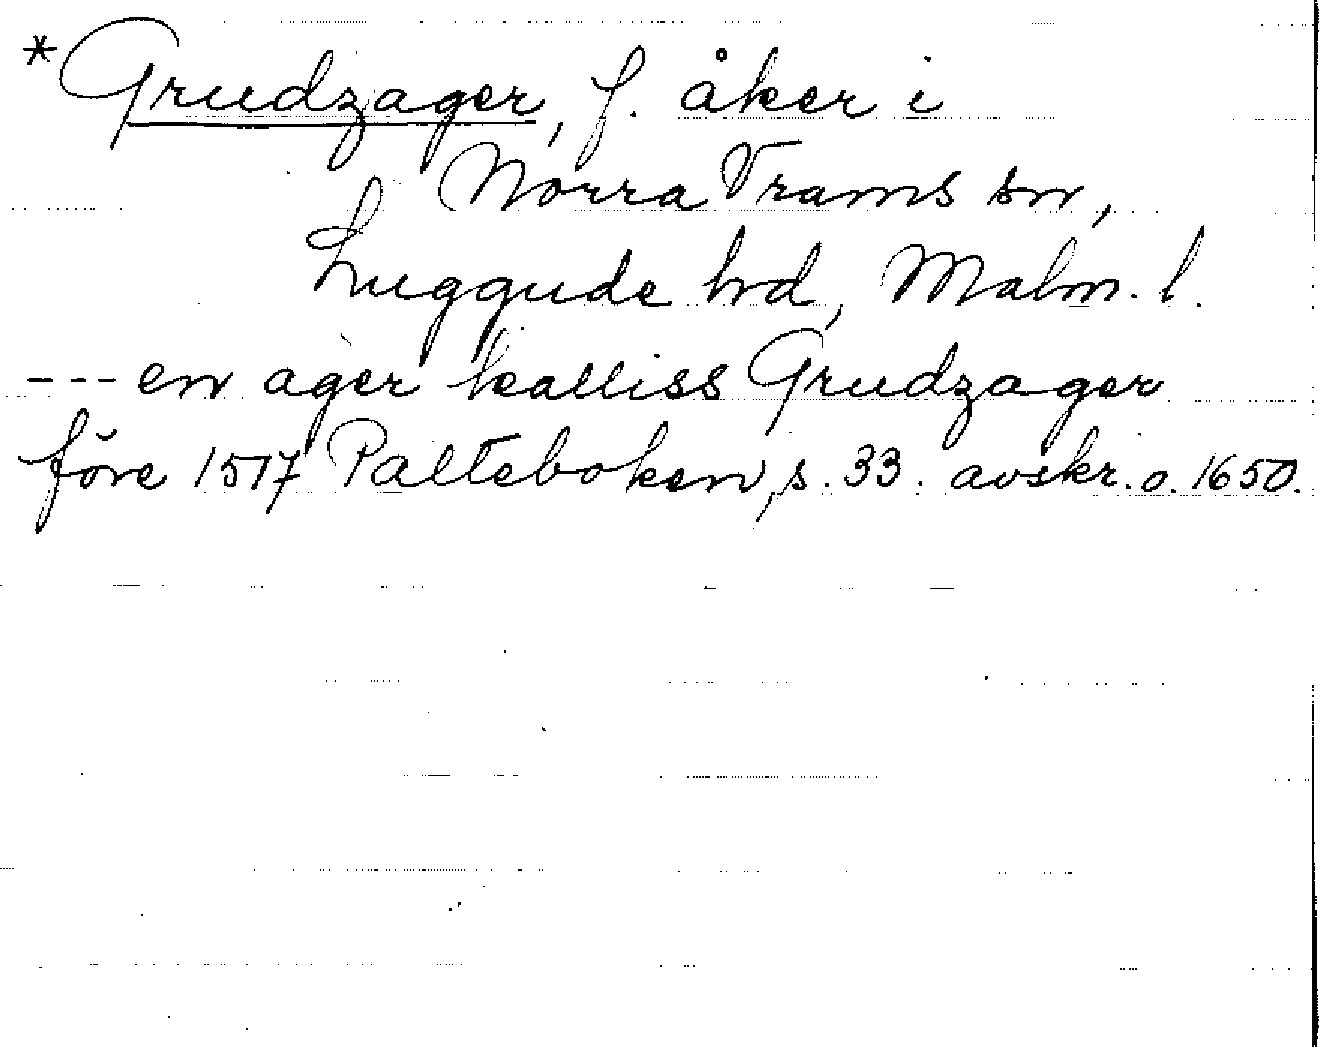 * Grudzager, f. åker i
Norra Vrams sn,
Luggude hd, Malm. l.
--- en ager kalliss Grudzager
före 1517 Palteboken, s. 33. avskr. o. 1650.